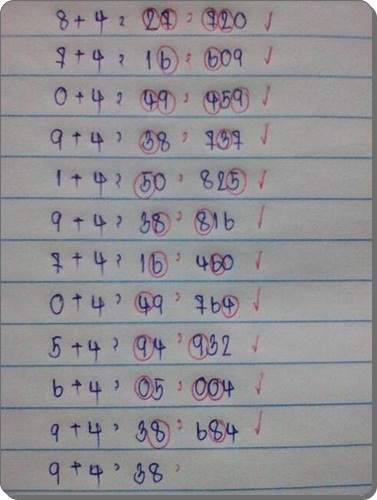 8+4 > 27 > 720 ✓
7+4 > 16 > 609 ✓
0+4 > 49 > 459 ✓
9+4 > 38 > 737 ✓
1+4 > 50 > 825 ✓
9+4 > 38 > 816 ✓
7+4 > 16 > 460 ✓
0+4 > 49 > 764 ✓
5+4 > 94 > 932 ✓
6+4 > 05 > 004 ✓
9+4 > 38 > 684 ✓
9+4 > 38 >